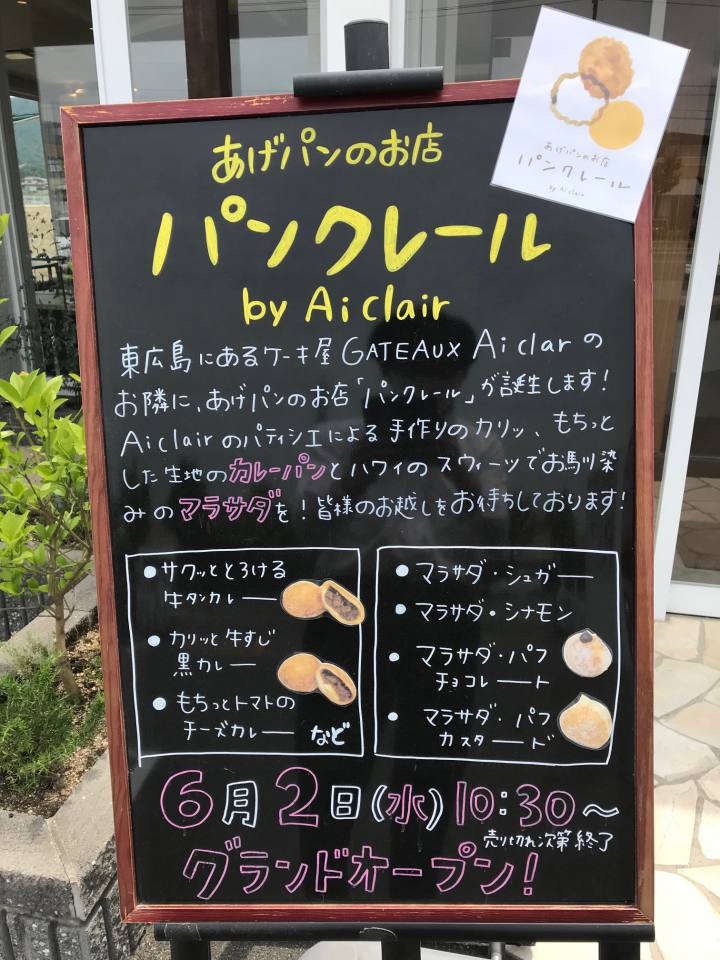 あげパンのお店
パンクレール
by Aiclair
あげパンのお店
パンクレール
by Aiclair
東広島にあるケーキ屋 GATEAUX Aiclarの
お隣に、あげパンのお店「パンクレール」が誕生します!
Aiclairのパティシエによる手作りのカリッ、もちっと
した生地のカレーパンとハワイのスウィーツでお馬川染
みのマラサダを!皆様のお越しをお待ちしております!
●サクッととろける
牛タンカレー
●カリッと牛すじ
黒カレー
●もちっとトマトの
チーズカレー など
●マラサダ・シュガー
●マラサダ・シナモン
●マラサダ・パフ
チョコレート
●マラサダ・パフ
カスタード
6月2日(水)10:30~
売り切れ次第終了
グランドオープン!